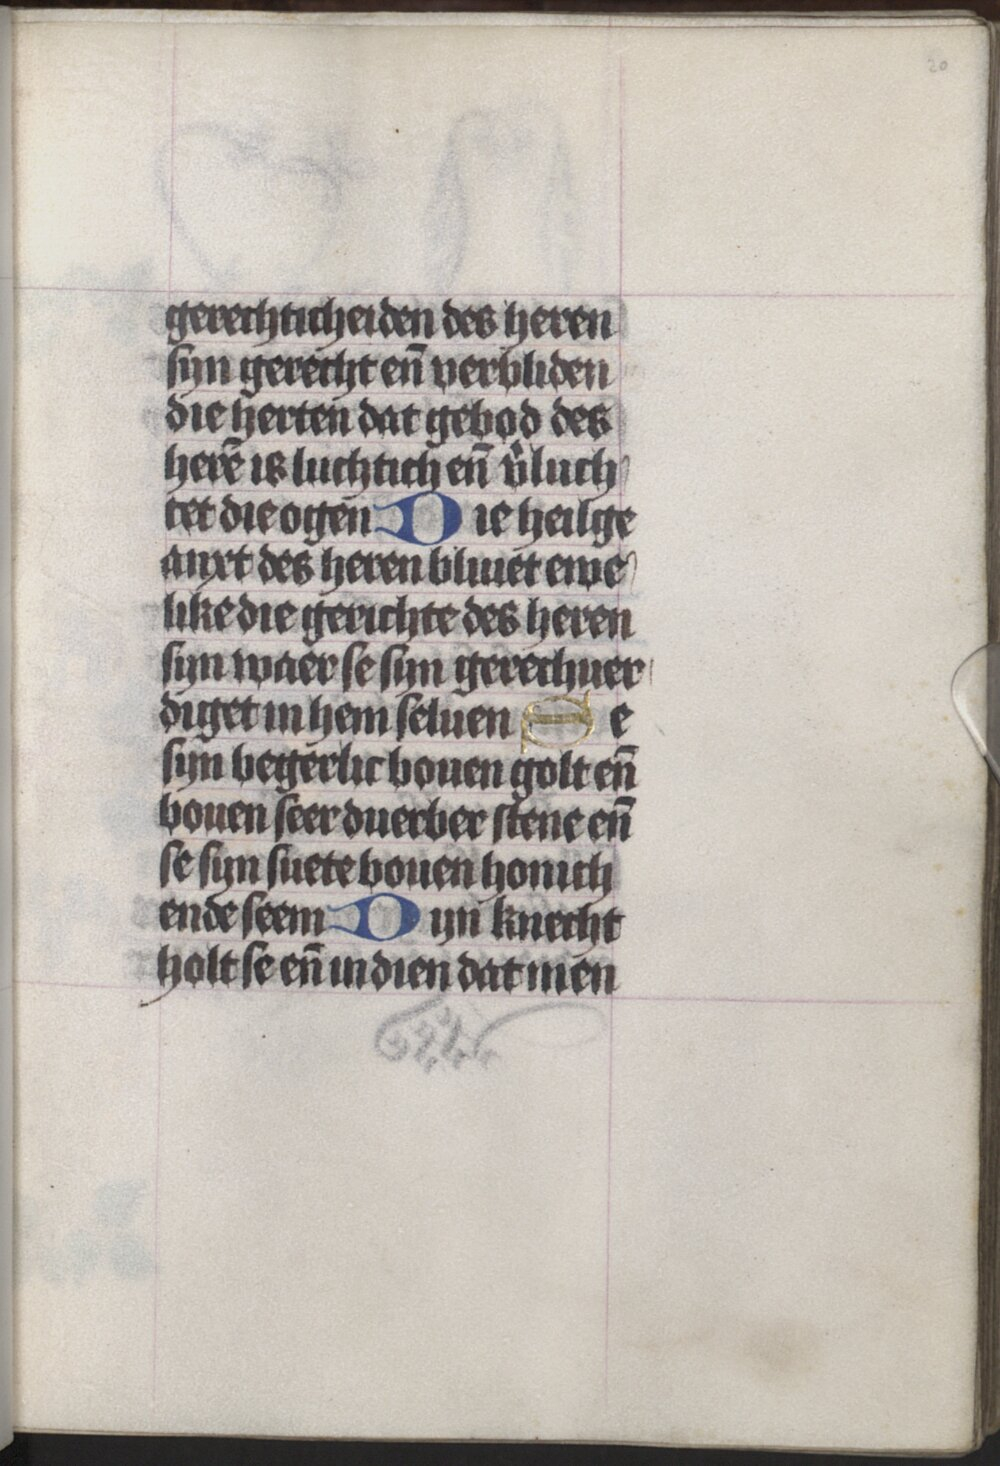 20
gerechticheiden des heren
sijn gerecht en̄ verbliden
die herten dat gebod des
herē is luchtich en̄ v̾luch
tet die ogen Die heilige
anxt des heren bliuet ewe
like die gerichte des heren
sijn waer se sijn gerechuer
diget in hem seluen Se
sijn begerlic bouen golt en̄
bouen seer duerber stene en̄
se sijn suete bouen honich
ende seem Dijn knecht
holt se en̄ in dien dat men